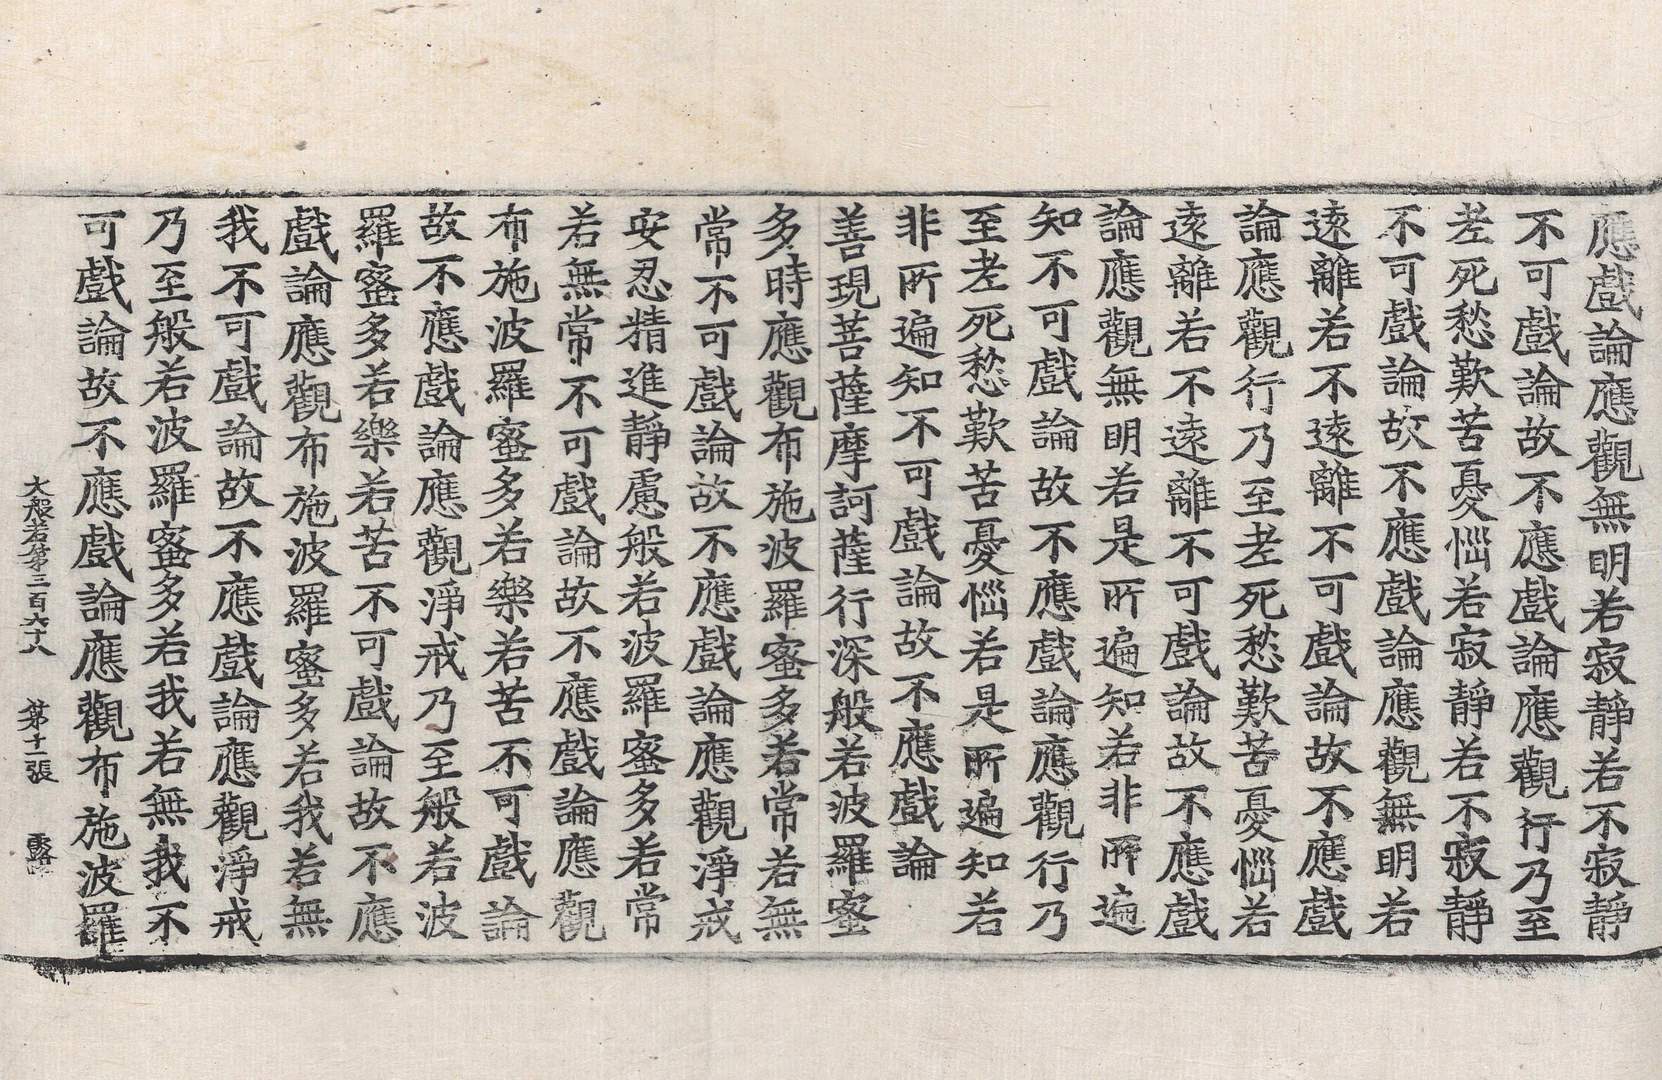 應戲論應觀無明若寂靜若不寂靜
不可戲論故不應戲論應觀行乃至
老死愁歎苦憂惱若寂靜若不寂靜
不可戲論故不應戲論應觀無明若
遠離若不遠離不可戲論故不應戲
論應觀行乃至老死愁歎苦憂惱若
遠離若不遠離不可戲論故不應戲
論應觀無明若是所遍知若非所遍
知不可戲論故不應戲論應觀行乃
至老死愁歎苦憂惱若是所遍知若
非所遍知不可戲論故不應戲論
善現菩薩摩訶薩行深般若波羅蜜
多時應觀布施波羅蜜多若常若無
常不可戲論故不應戲論應觀淨戒
安忍精進靜慮般若波羅蜜多若常
若無常不可戲論故不應戲論應觀
布施波羅蜜多若樂若苦不可戲論
故不應戲論應觀淨戒乃至般若波
羅蜜多若樂若苦不可戲論故不應
戲論應觀布施波羅蜜多若我若無
我不可戲論故不應戲論應觀淨戒
乃至般若波羅蜜多若我若無我不
可戲論故不應戲論應觀布施波羅
大般若第三百六十八 第十一張